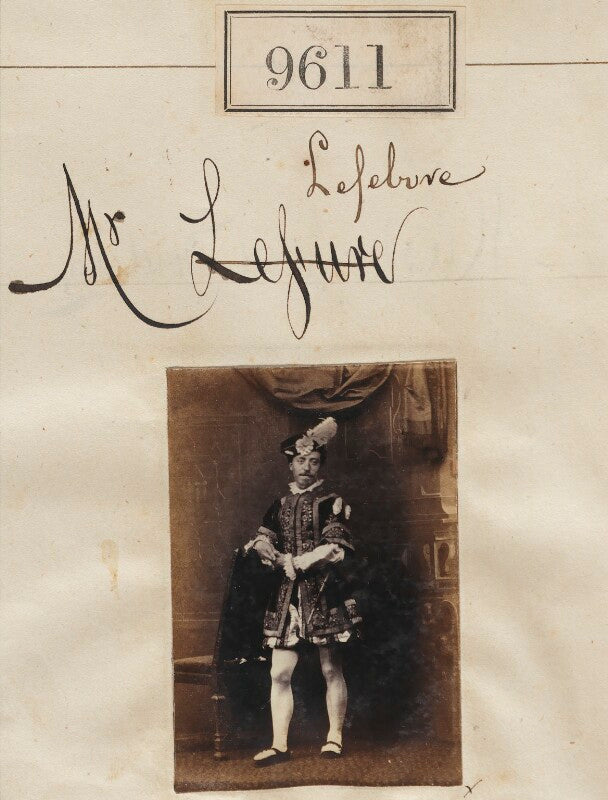 9611
Lefebvre
Mr Lefevre